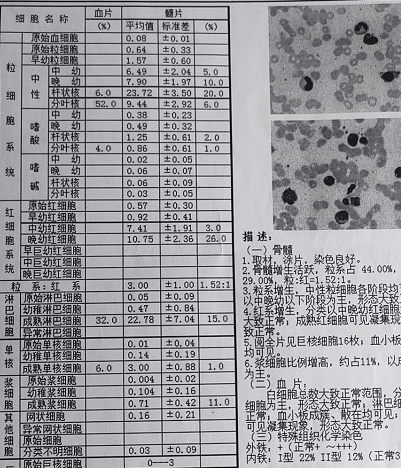 细 胞 名 称 血片 髓片
(%) 平均值 标准差 (%)
原始血细胞 0.08 ±0.01
粒细胞系统
原始粒细胞 0.64 ±0.33
早幼粒细胞 1.57 ±0.60
中性 中 幼 6.49 ±2.04 5.0
晚 幼 7.90 ±1.97 10.0
杆状核 6.0 23.72 ±3.50 20.0
分叶核 52.0 9.44 ±2.92 6.0
嗜酸 中 幼 0.38 ±0.23
晚 幼 0.49 ±0.32
杆状核 1.25 ±0.61 2.0
分叶核 4.0 0.86 ±0.61 1.0
嗜碱 中 幼 0.02 ±0.05
晚 幼 0.06 ±0.07
杆状核 0.06 ±0.09
分叶核 0.03 ±0.05
红细胞系统
原始红细胞 0.57 ±0.30
早幼红细胞 0.92 ±0.41
中幼红细胞 7.41 ±1.91 3.0
晚幼红细胞 10.75 ±2.36 26.0
早巨幼红细胞
中巨幼红细胞
晚巨幼红细胞
粒 系：红 系 3.00 ±1.00 1.52:1
淋巴细胞
原始淋巴细胞 0.05 ±0.09
幼稚淋巴细胞 0.47 ±0.84
成熟淋巴细胞 32.0 22.78 ±7.04 15.0
异常淋巴细胞
单核
原始单核细胞 0.01 ±0.04
幼稚单核细胞 0.14 ±0.19
成熟单核细胞 6.0 3.00 ±0.88 1.0
浆细胞
原始浆细胞 0.004 ±0.02
幼稚浆细胞 0.104 ±0.16
成熟浆细胞 0.71 ±0.42 11.0
其他细胞
网状细胞 0.16 ±0.21
异常网状细胞
原始细胞
分类不明细胞 0.03 ±0.09
原始巨核细胞 0---3
描 述：
(一) 骨髓
1.取材，涂片，染色良好。
2.骨髓增生活跃，粒系占 44.00%，
29.00%，粒:红=1.52:1。
3.粒系增生，中性粒细胞各阶段均
以中晚幼以下阶段为主，形态大致
4.红系增生，分类以中晚幼红细胞
大致正常，成熟红细胞可见凝集现
致正常。
5.阅全片见巨核细胞16枚，血小板
均可见。
6.浆细胞比例增高，约占11%，以成
为主。
(二) 血 片：
白细胞总数大致正常范围，分
细胞为主，形态大致正常，淋巴细
正常，血小板成簇、散在均可见；
可见凝集现象，形态大致正常。
(三) 特殊组织化学染色
外铁：+ (正常+ ～+++)
内铁：I型 22% II型 12% (正常3